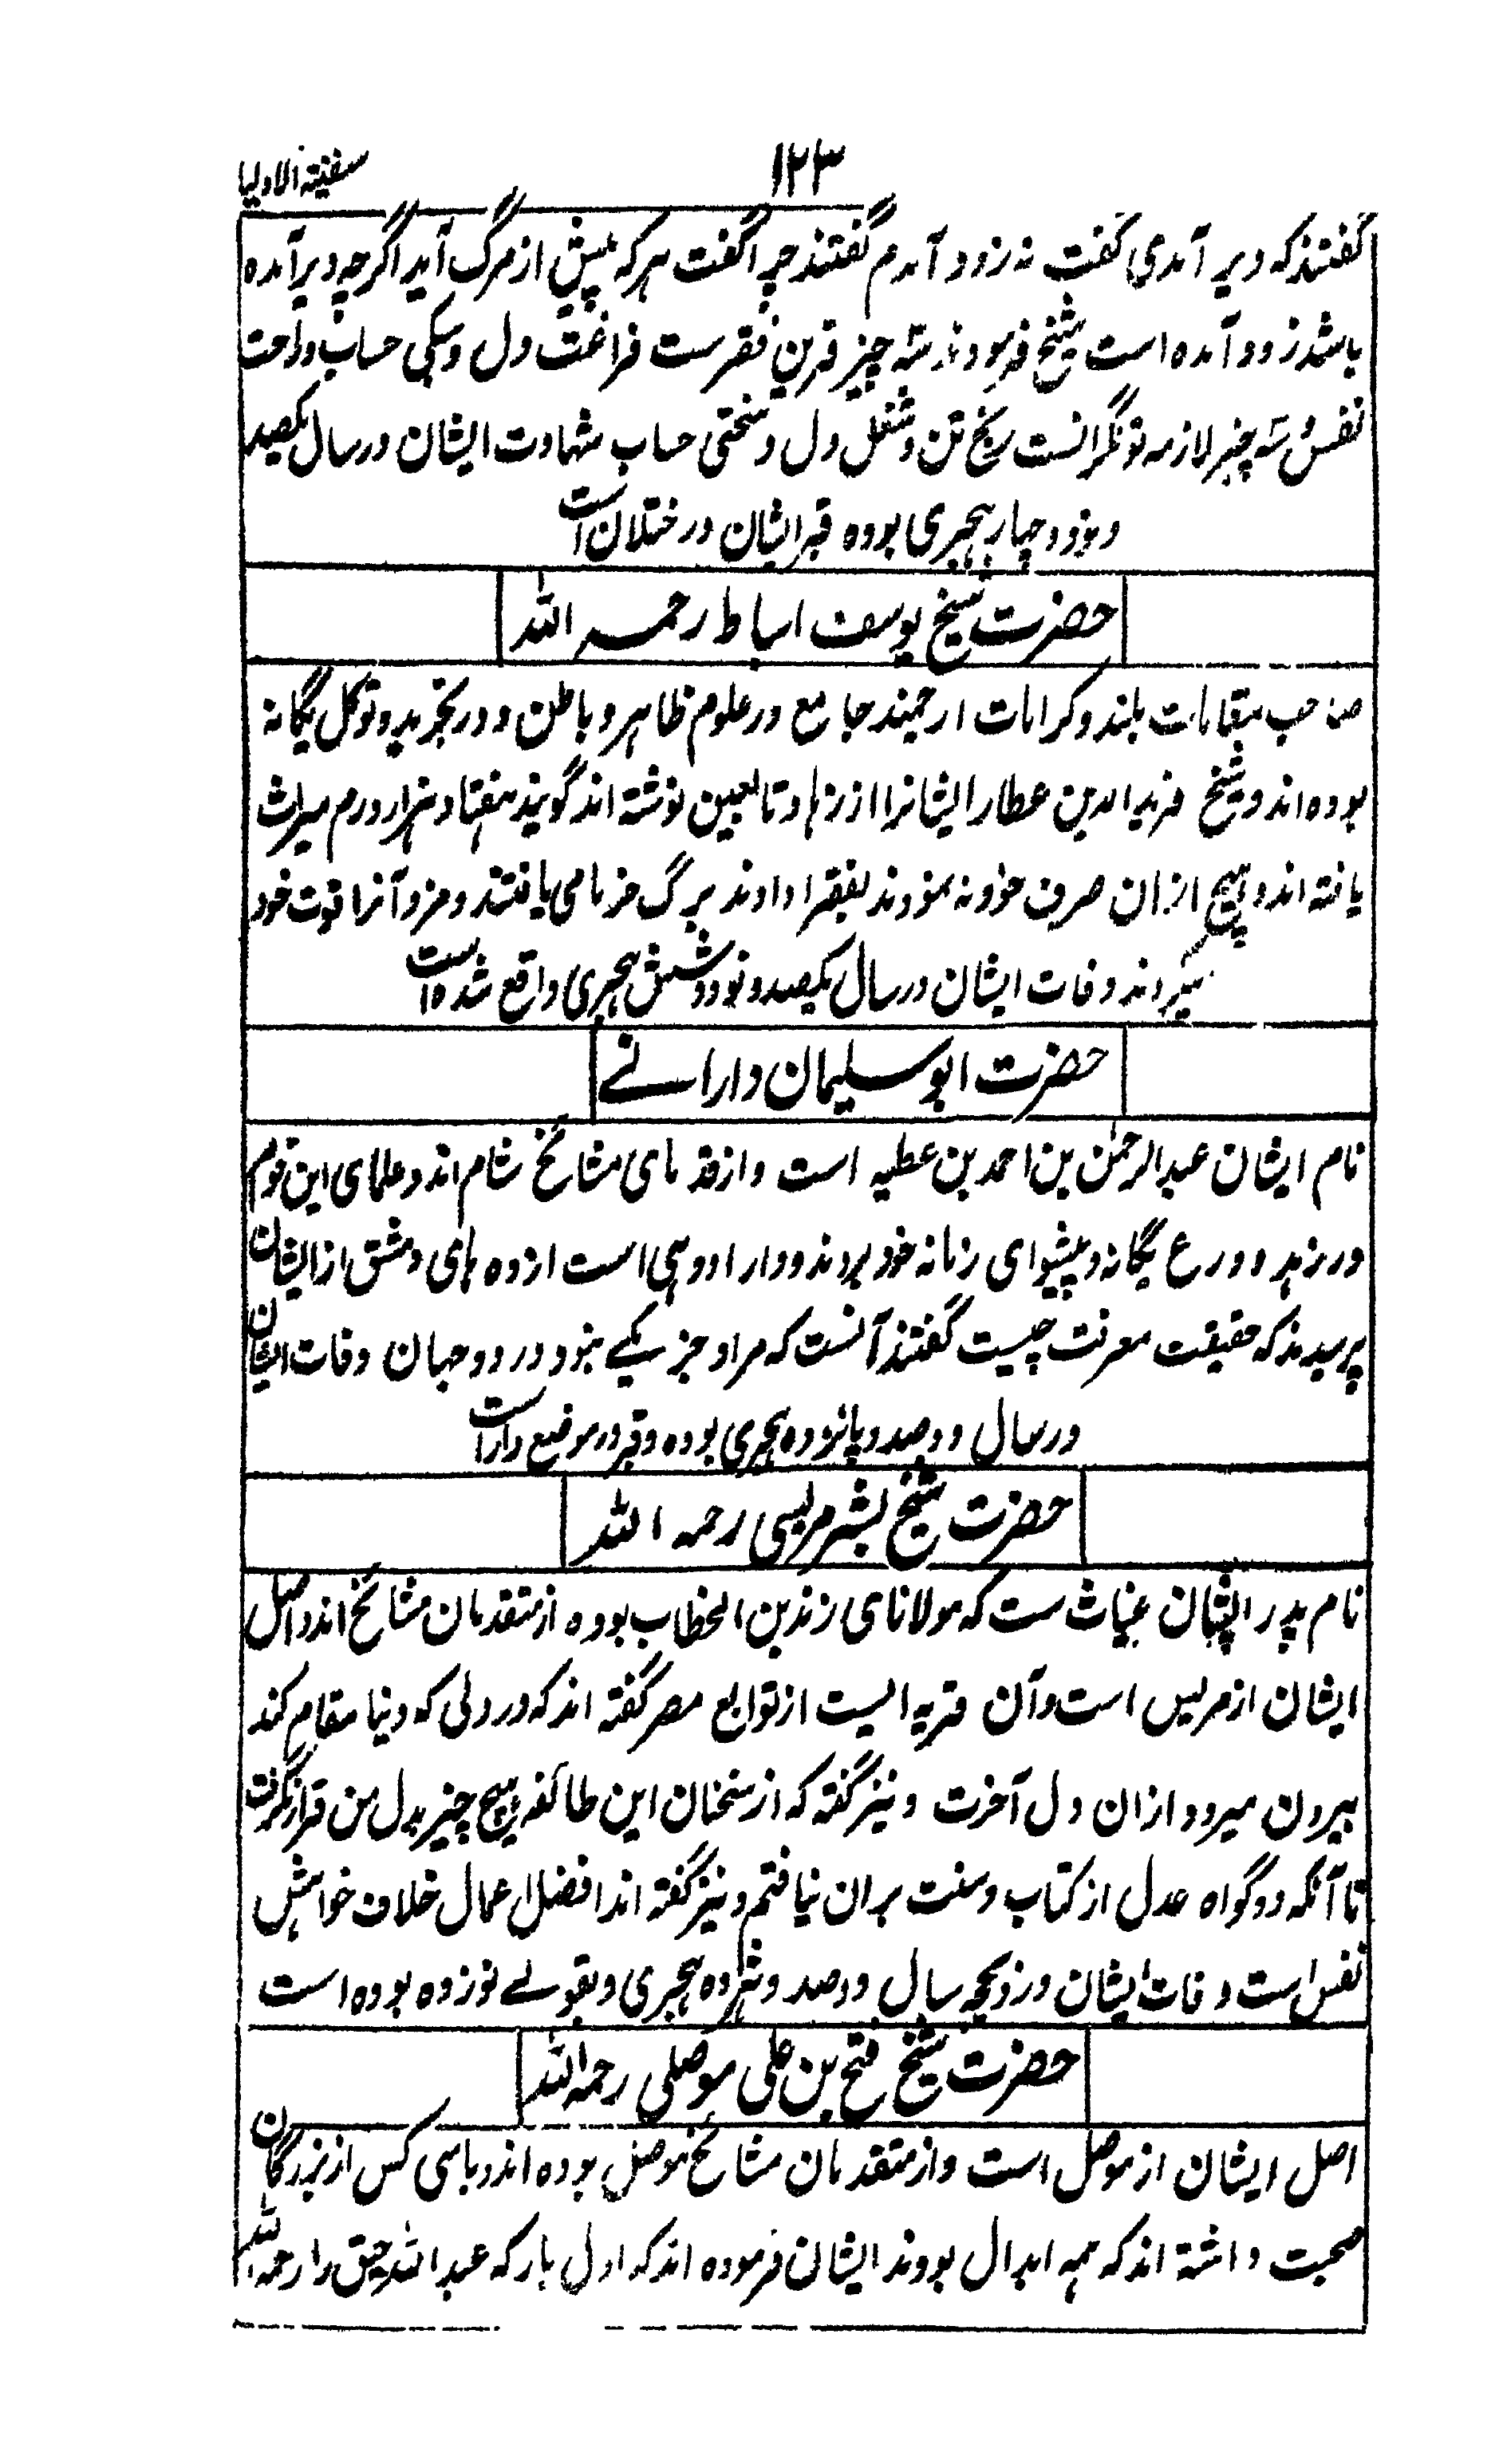 ۱۲۳
سفینة الاولیا
گفتند که دیر آمدی گفت نه زود آمدم گفتند چرا گفت هر که پیش از مرگ آید اگرچه دیر آمده
باشد زود آمده است شیخ فرمودند سه چیز قرین فقرست فراغت دل و سبکی حساب و راحت
نفس و سه چیز لازمه توانگرانست رنج تن و شغل دل و سختی حساب شهادت ایشان در سال یکصد
و نود و چهار هجری بوده قبر ایشان در ختلان است
حضرت شیخ یوسف اسباط رحمه الله
صاحب مقامات بلند و کرامات ارجمند جامع در علوم ظاهر و باطن و در تجرید و توکل یگانه
بوده اند و شیخ فرید الدین عطار ایشانرا از زهاد تابعین نوشته اند گویند هفتاد هزار درم میراث
یافته اند و هیچ ازان صرف خود نه نمودند بفقرا دادند برگ خرما می بافتند و مزد آنرا قوت خود
میکردند وفات ایشان در سال یکصد و نود و شش هجری واقع شده است
حضرت ابو سلیمان دارانے
نام ایشان عبد الرحمٰن بن احمد بن عطیه است و از قدمای مشائخ شام اند و علمای این قوم
در زهد و ورع یگانه و پیشوای زمانه خود بودند و دارا دوهی است از ده های دمشق از ایشان
پرسیدند که حقیقت معرفت چیست گفتند آنست که مراد جز یکے نبود در دو جهان وفات ایشان
در سال دو صد و پانزده هجری بوده و قبر در موضع داراست
حضرت شیخ بشر مریسی رحمه الله
نام پدر ایشان غیاث ست که مولانای زند بن الخطاب بوده از متقدمان مشائخ اند و اصل
ایشان از مریس است و آن قریه ایست از توابع مصر گفته اند که در دلی که دنیا مقام کند
بیرون میرود ازان دل آخرت و نیز گفته که از سخنان این طائفه هیچ چیز بدل من قرار نگرفت
تا آنکه دو گواه عدل از کتاب و سنت بران نیافتم و نیز گفته اند افضل اعمال خلاف خواهش
نفس است وفات ایشان در ذیحجه سال دو صد و هژده هجری و بقولے نوزده بوده است
حضرت شیخ فتح بن علی موصلی رحمه الله
اصل ایشان از موصل است و از متقدمان مشائخ موصل بوده اند و باسی کس از بزرگان
صحبت داشته اند که همه ابدال بودند ایشان فرموده اند که اول بار که عبد الله خبیق را رحمه الله